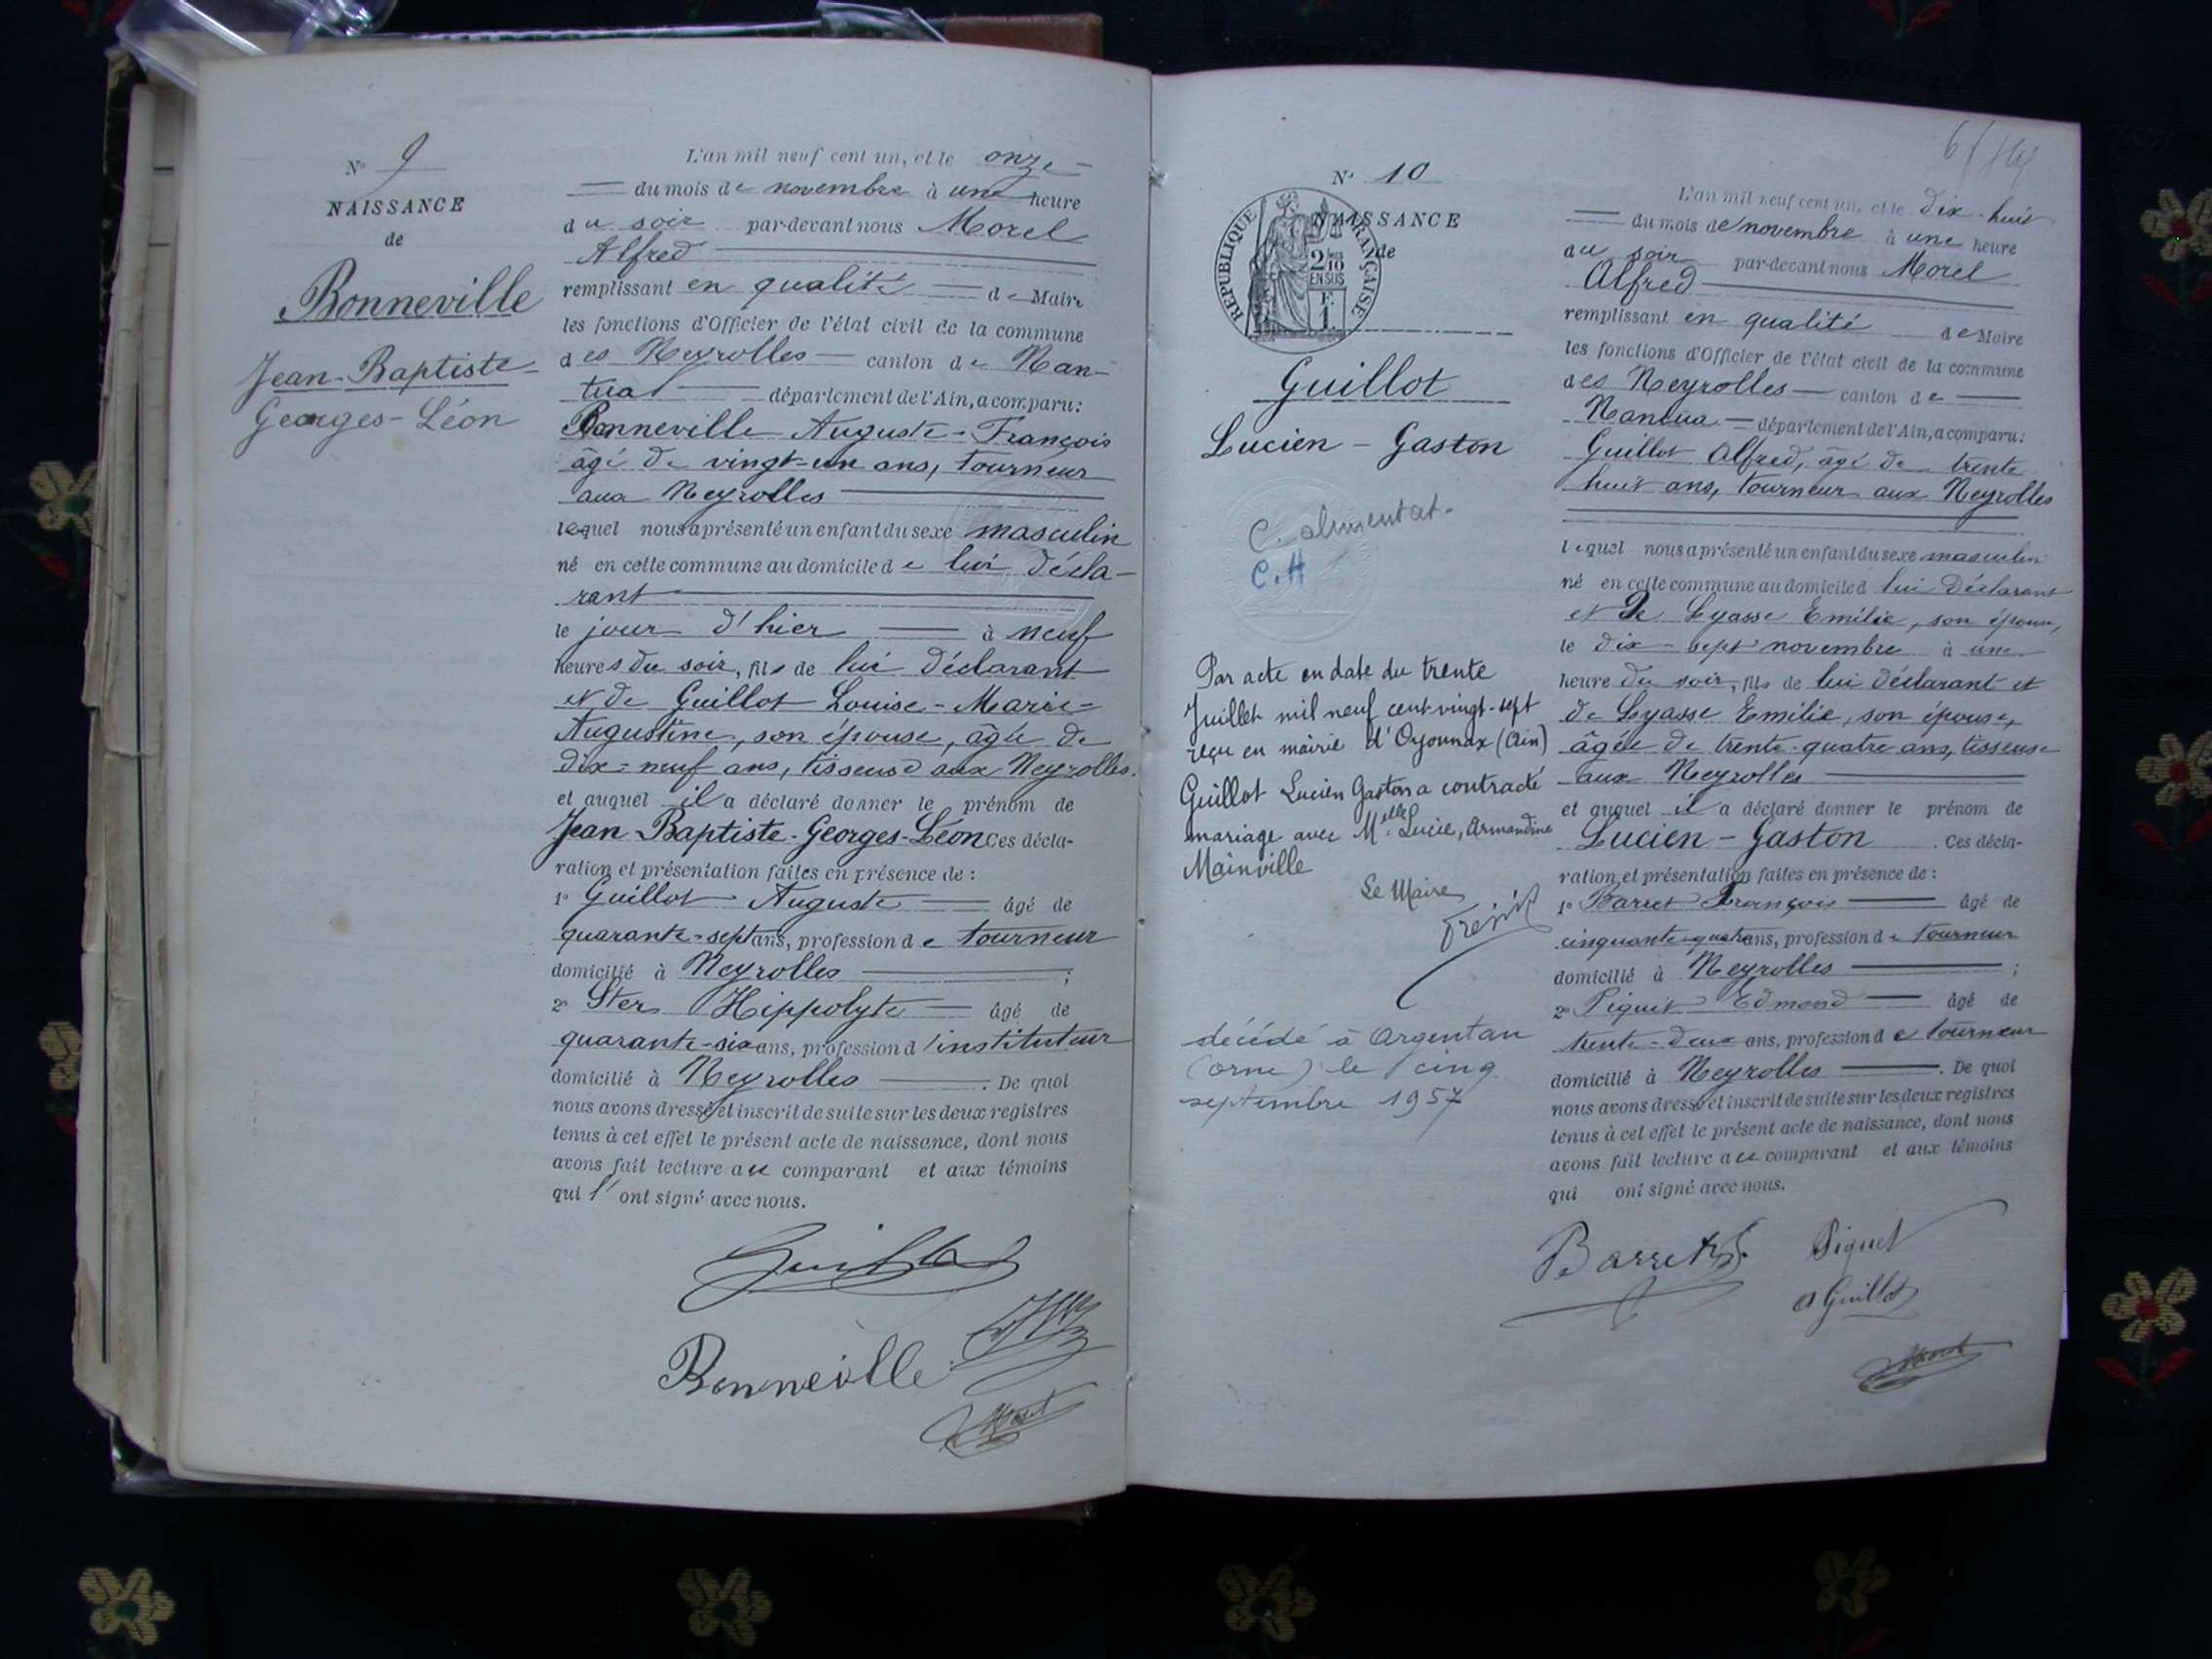 N° 9
NAISSANCE
de
Bonneville
Jean-Baptiste-
Georges-Léon
L'an mil neuf cent un, et le onze
du mois de novembre à une heure
du soir par-devant nous Morel
Alfred
remplissant en qualité de Maire
les fonctions d'Officier de l'état civil de la commune
des Neyrolles canton de Nan-
tua département de l'Ain, a comparu:
Bonneville Auguste-François
âgé de vingt-un ans, tourneur
aux Neyrolles
lequel nous a présenté un enfant du sexe masculin
né en cette commune au domicile de lui décla-
rant
le jour d'hier à neuf
heures du soir, fils de lui déclarant
et de Guillot Louise-Marie-
Augustine, son épouse, âgée de
dix-neuf ans, tisseuse aux Neyrolles.
et auquel il a déclaré donner le prénom de
Jean-Baptiste-Georges-Léon Ces décla-
ration et présentation faites en présence de :
1° Guillot Auguste âgé de
quarante-sept ans, profession de tourneur
domicilié à Neyrolles ;
2° Ster Hippolyte âgé de
quarante-six ans, profession d'instituteur
domicilié à Neyrolles . De quoi
nous avons dressé et inscrit de suite sur les deux registres
tenus à cet effet le présent acte de naissance, dont nous
avons fait lecture au comparant et aux témoins
qui l'ont signé avec nous.
Guillot
Bonneville
Morel
6
N° 10
NAISSANCE
de
RÉPUBLIQUE FRANÇAISE
2/10
EN SUS
F.
1.
Guillot
Lucien - Gaston
C. alimentat.
C.H
Par acte en date du trente
Juillet mil neuf cent vingt-sept
reçu en mairie d'Oyonnax (Ain)
Guillot Lucien Gaston a contracté
mariage avec Melle Lucie, Armandine
Mainville
Le Maire
décédé à Argentan
(orne) le cinq
septembre 1957
L'an mil neuf cent un, et le dix-huit
du mois de novembre à une heure
du soir par-devant nous Morel
Alfred
remplissant en qualité de Maire
les fonctions d'Officier de l'état civil de la commune
des Neyrolles canton de
Nantua département de l'Ain, a comparu:
Guillot Alfred, âgé de trente
huit ans, tourneur aux Neyrolles
lequel nous a présenté un enfant du sexe masculin
né en cette commune au domicile d lui déclarant
et de Lyasse Emilie, son épouse,
le dix-sept novembre à une
heure du soir, fils de lui déclarant et
de Lyasse Emilie, son épouse,
âgée de trente-quatre ans, tisseuse
aux Neyrolles
et auquel il a déclaré donner le prénom de
Lucien - Gaston . Ces décla-
ration et présentation faites en présence de :
1° Barret François âgé de
cinquante-quatre ans, profession de tourneur
domicilié à Neyrolles ;
2° Piquet Edmond âgé de
trente-deux ans, profession de tourneur
domicilié à Neyrolles . De quoi
nous avons dressé et inscrit de suite sur les deux registres
tenus à cet effet le présent acte de naissance, dont nous
avons fait lecture au comparant et aux témoins
qui ont signé avec nous.
Barret Piquet
A Guillot
Morel